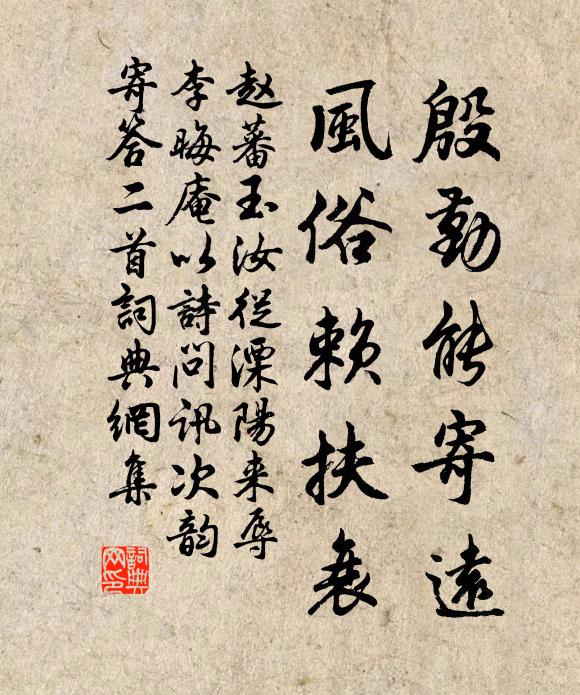 殷勤能寄遠
風俗賴扶衰
赵蕃玉汝從溧陽来辱
李晦庵以詩問訊次韵
寄答二首詞典網集
詞典网印